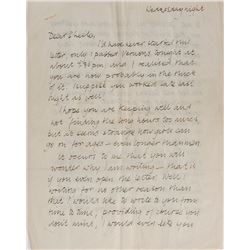 Wednesday night
Dear Sheila,
I'd have never started this
letter, only I passed Vernons tonight at
about 7.30pm and I realised that
you are now probably in the thick
of it. I suppose you worked late last
night as well!
I hope you are keeping well and
not finding the long hours too much,
but it seems strange how girls can
go on for ages - even longer than men.
It occurs to me that you will
wonder why I am writing - that is
if you even open the letter. Well I
writing for no other reason than
that I would like to write to you from
time to time, providing of course you
don't mind, I would even let you